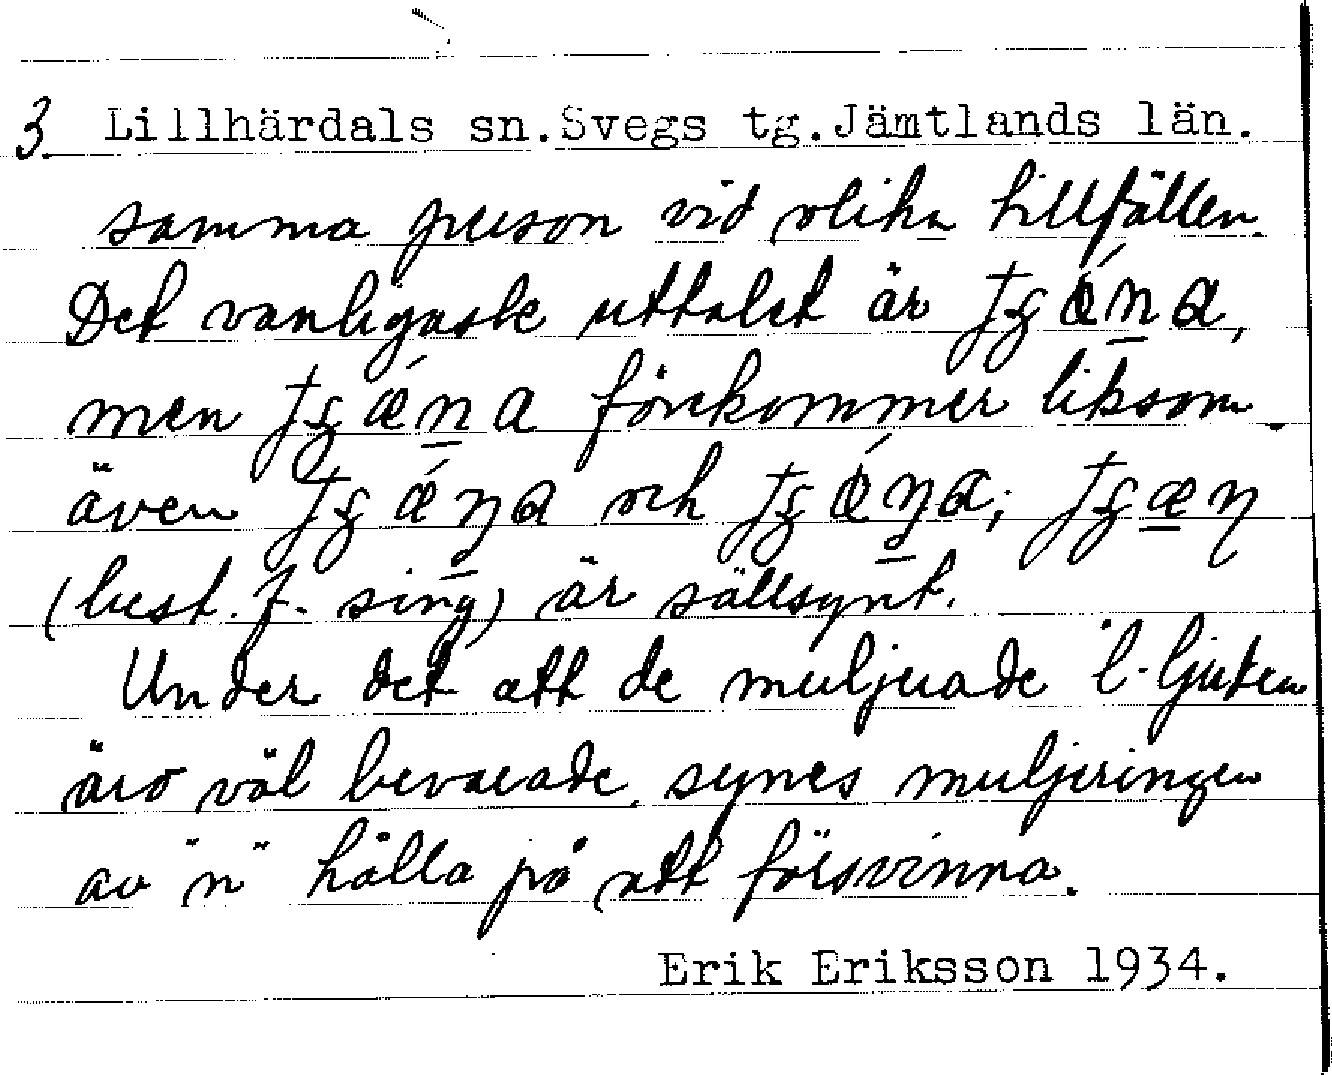 3. Lillhärdals sn. Svegs tg. Jämtlands län.
samma person vid olika tillfällen.
Det vanligaste uttalet är
men förekommer liksom
även och
(best. f. sing) är sällsynt.
Under det att de muljerade "l"-ljuden
äro väl bevarade, synes muljeringen
av "n" hålla på att försvinna.
Erik Eriksson 1934.